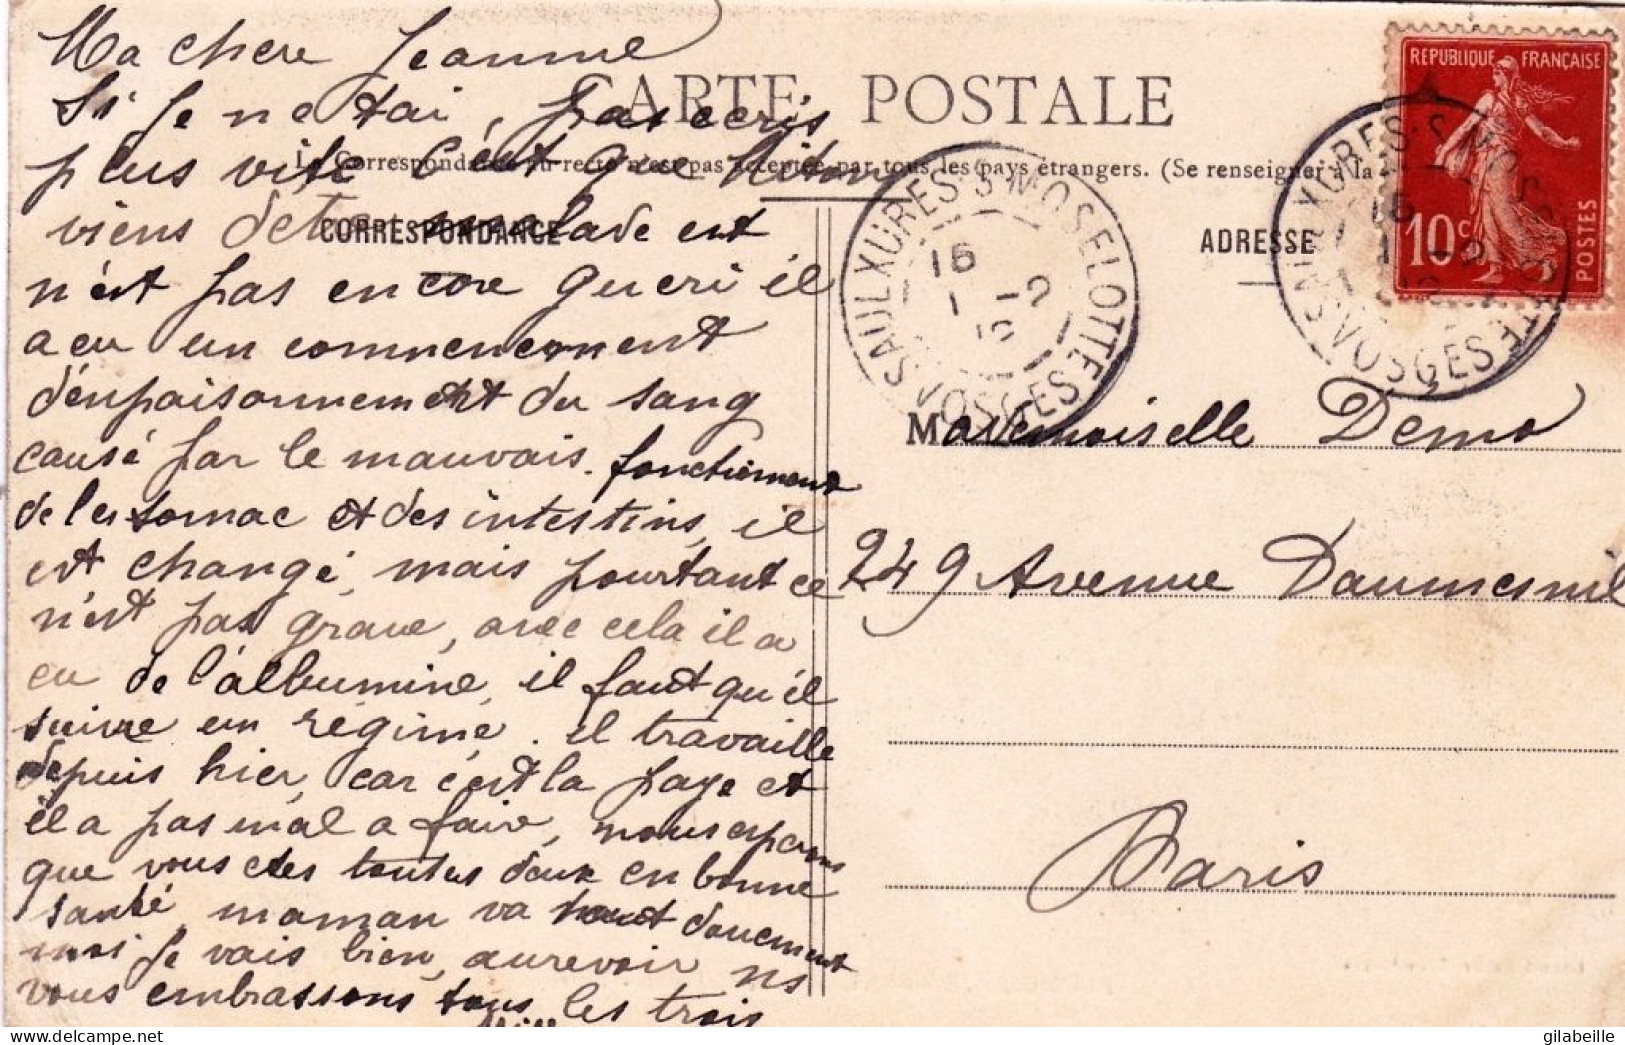 Ma chere Jeanne
Si je ne tai pas ecris
plus vite c'est que
viens detre malade est
n'est pas encore gueri il
a eu un commencement
d'enpaisonnement du sang
causé par le mauvais fonctionment
de les tomac et des intestins, il
est changé, mais pourtant ce
n'est pas grave, avec cela il a
eu de l'albumine, il faut qu'il
suivre un régime. il travaille
depuis hier, car c'est la paye et
il a pas mal a faire, nous esperons
que vous etes toutes deux en bonne
santé, maman va tout doucement
moi je vais bien, aurevoir ns
vous embrassons tous les trois
CARTE POSTALE
La Correspondance au recto n'est pas acceptée par tous les pays étrangers. (Se renseigner à la
CORRESPONDANCE
ADRESSE
REPUBLIQUE FRANÇAISE
10c
POSTES
SAULXURES-S-MOSELOTTE
VOSGES
16
1 -2
SAULXURES-S-MOSELOTTE
VOSGES
16
1 -2
Mademoiselle Demo
249 Avenue Daumesnil
Paris
www.delcampe.net
gilabeille